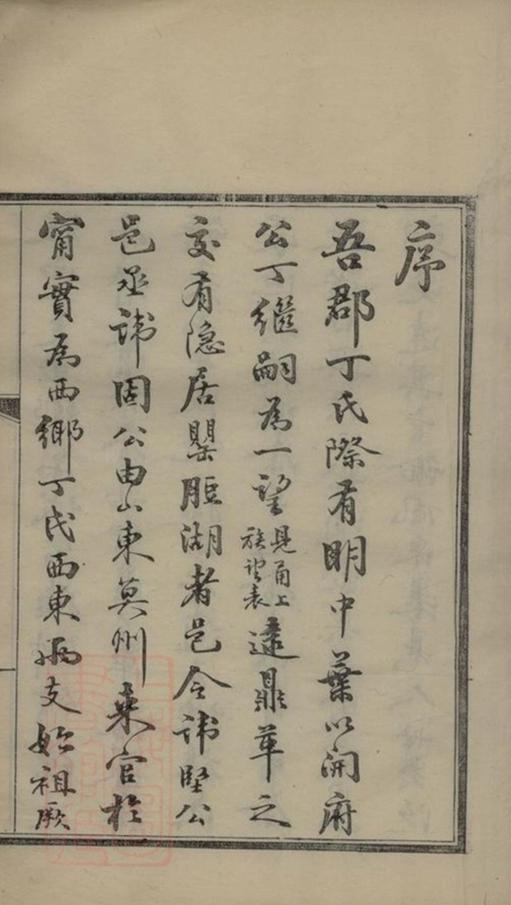 序
吾郡丁氏際有明中葉以開府
公丁繼嗣為一望見甬上族望表逮鼎革之
交有隐居罌脰湖者邑令諱堅公
邑丞諱固公由山東莫州來官於
甯實為西鄉丁氏西東兩支始祖厥